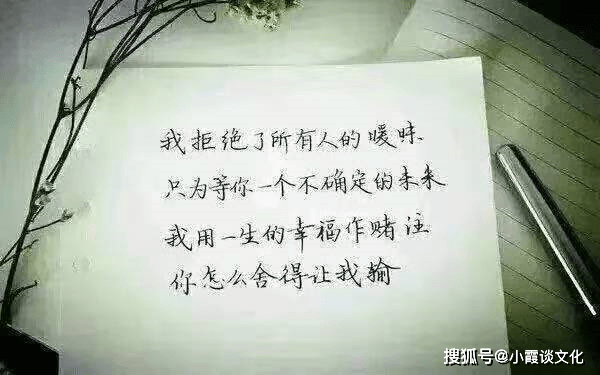 我拒绝了所有人的暧昧
只为等你一个不确定的未来
我用一生的幸福作赌注
你怎么舍得让我输
搜狐号@小霞谈文化